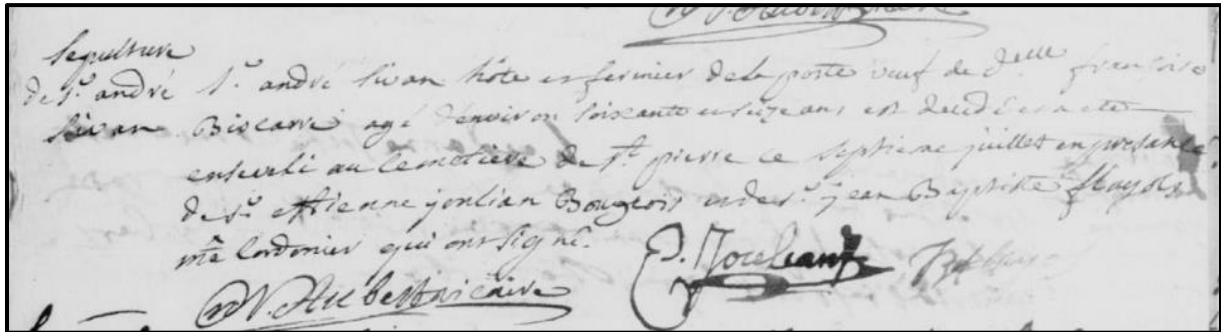 Sepulture
de Sr. andré
Sivan
Sr. andré Sivan hôte et fermier de la poste veuf de delle françoise
Biscarre agé d'environ soisante et seize ans est decedé et a eté
enseveli au cemetiere de St. pierre ce septieme juillet en presance
de Sr. ettienne joulian Bougeois et de sr. jean Baptiste flayols
mtre Cordonier qui ont signé.
E. Jouleant
N. Aubert vicaire